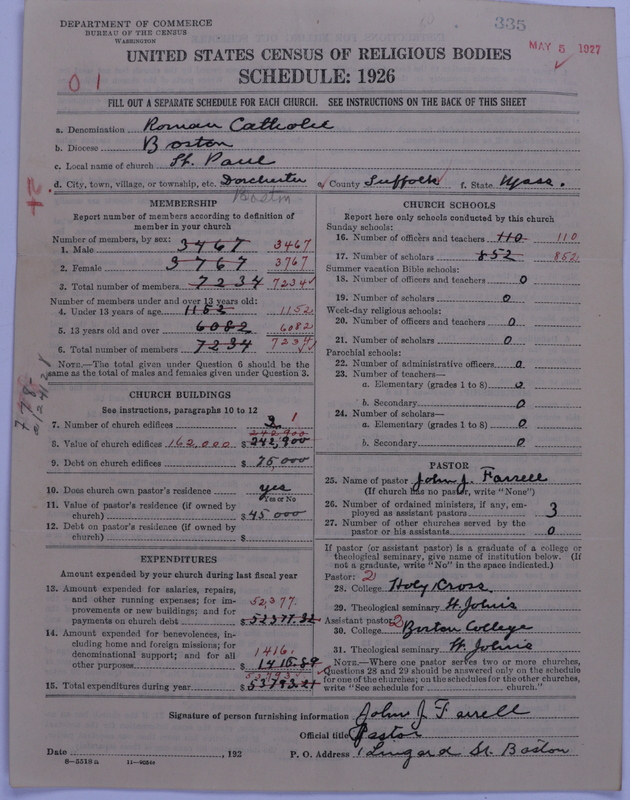 335
MAY 5 1927
DEPARTMENT OF COMMERCE
BUREAU OF THE CENSUS
WASHINGTON
UNITED STATES CENSUS OF RELIGIOUS BODIES
SCHEDULE: 1926
0 1
FILL OUT A SEPARATE SCHEDULE FOR EACH CHURCH. SEE INSTRUCTIONS ON THE BACK OF THIS SHEET
a. Denomination Roman Catholic
b. Diocese Boston
c. Local name of church St. Paul
d. City, town, village, or township, etc. Dorchester e. County Suffolk f. State Mass.
Boston
MEMBERSHIP
Report number of members according to definition of member in your church
Number of members, by sex:
1. Male 3467 3467
2. Female 3767 3767
3. Total number of members 7234 7234
Number of members under and over 13 years old:
4. Under 13 years of age 1152 1152
5. 13 years old and over 6082 6082
6. Total number of members 7234 7234
NOTE.—The total given under Question 6 should be the same as the total of males and females given under Question 3.
CHURCH BUILDINGS
See instructions, paragraphs 10 to 12
7. Number of church edifices 2 1
242,900
8. Value of church edifices 162,000 $ 242,900
9. Debt on church edifices $ 75,000
10. Does church own pastor's residence yes
Yes or No
11. Value of pastor's residence (if owned by church) $ 45000
12. Debt on pastor's residence (if owned by church) $
EXPENDITURES
Amount expended by your church during last fiscal year
13. Amount expended for salaries, repairs, and other running expenses; for improvements or new buildings; and for payments on church debt 52,377. $ 52377.32
14. Amount expended for benevolences, including home and foreign missions; for denominational support; and for all other purposes 1416. $ 1415.89
53793.
15. Total expenditures during year $ 53793.21
CHURCH SCHOOLS
Report here only schools conducted by this church
Sunday schools:
16. Number of officers and teachers 110 110
17. Number of scholars 852 852
Summer vacation Bible schools:
18. Number of officers and teachers 0
19. Number of scholars 0
Week-day religious schools:
20. Number of officers and teachers 0
21. Number of scholars 0
Parochial schools:
22. Number of administrative officers 0
23. Number of teachers—
a. Elementary (grades 1 to 8) 0
b. Secondary 0
24. Number of scholars—
a. Elementary (grades 1 to 8) 0
b. Secondary 0
PASTOR
25. Name of pastor John J. Farrell
(If church has no pastor, write "None")
26. Number of ordained ministers, if any, employed as assistant pastors 3
27. Number of other churches served by the pastor or his assistants 0
If pastor (or assistant pastor) is a graduate of a college or theological seminary, give name of institution below. (If not a graduate, write "No" in the space indicated.)
Pastor: 2
28. College Holy Cross
29. Theological seminary St. Johns
Assistant pastor: 2
30. College Boston College
31. Theological seminary St. Johns
NOTE.—Where one pastor serves two or more churches, Questions 28 and 29 should be answered only on the schedule for one of the churches; on the schedules for the other churches, write "See schedule for church."
Signature of person furnishing information John J Farrell
Official title Pastor
Date , 192 P. O. Address 1 Lingard St. Boston
8—5518a 11—9054